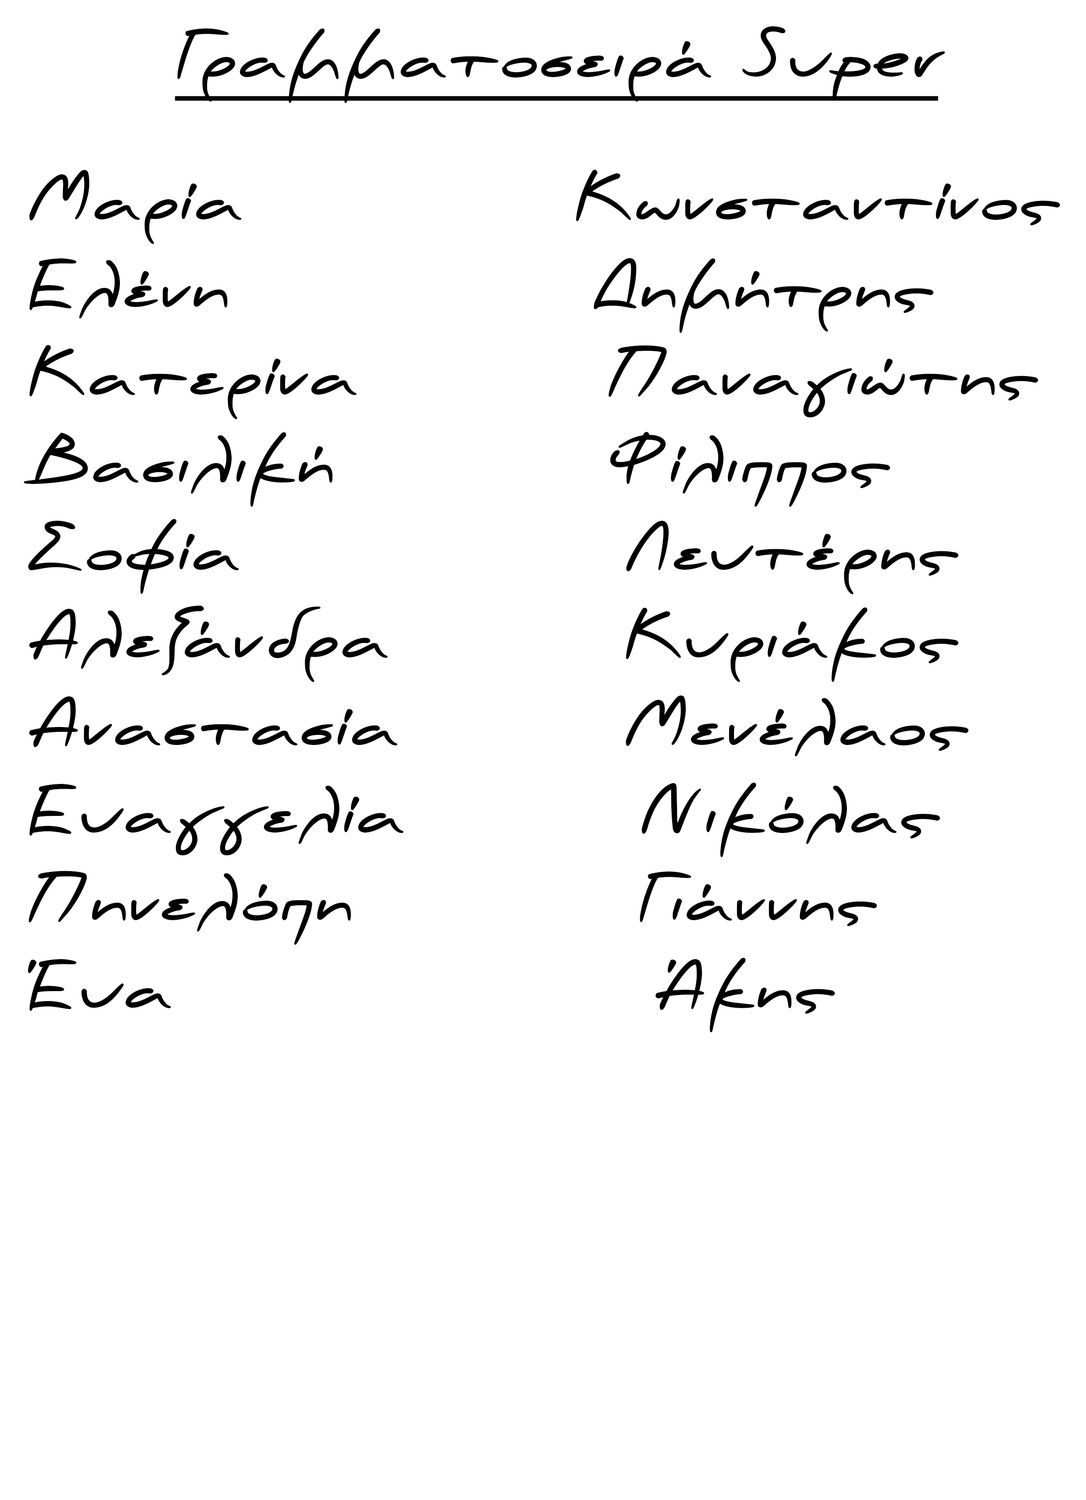 Γραμματοσειρά Super
Μαρία
Ελένη
Κατερίνα
Βασιλική
Σοφία
Αλεξάνδρα
Αναστασία
Ευαγγελία
Πηνελόπη
Έυα
Κωνσταντίνος
Δημήτρης
Παναγιώτης
Φίλιππος
Λευτέρης
Κυριάκος
Μενέλαος
Νικόλας
Γιάννης
Άκης